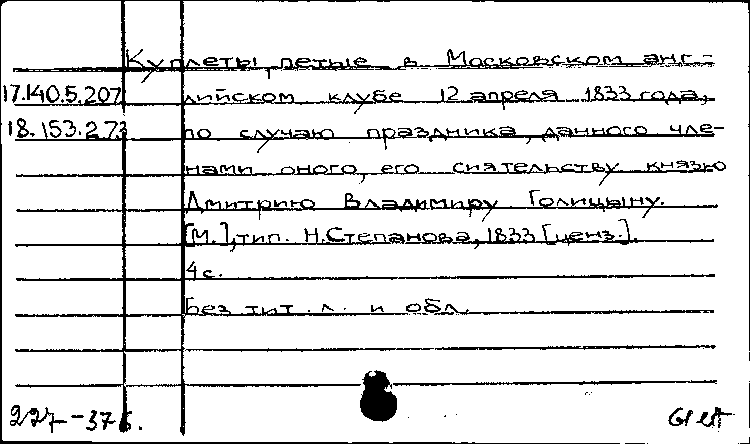 Куплеты, петые в Московском анг-
17.140.5.207 лийском клубе 12 апреля 1833 года,
18.153.2.73 по случаю праздника, данного чле-
нами оного, его сиятельству князю
Дмитрию Владимиру Голицыну.
[М.], тип. Н.Степанова, 1833 [ценз.].
4 с.
Без тит. л. и обл.